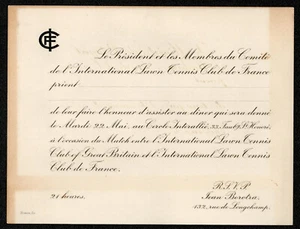 Le Président et les Membres du Comité
de l'International Lawn Tennis Club de France
prient
de leur faire l'honneur d'assister au dîner qui sera donné
le Mardi 22 Mai, au Cercle Interallié, 33 Faubg St Honoré,
à l'occasion du Match entre l'International Lawn Tennis
Club of Great Britain et l'International Lawn Tennis
Club de France.
R.S.V.P.
21 heures.
Jean Borotra,
152, rue de Longchamp.